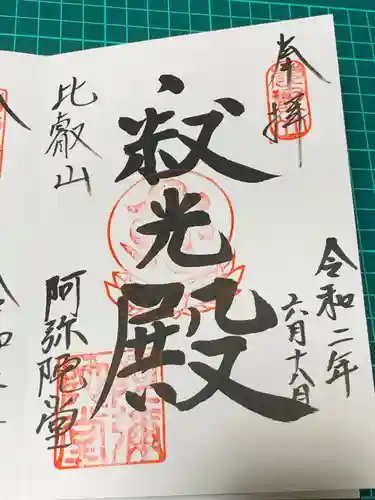 奉拝
令和二年
六月十八日
寂光殿
比叡山
阿弥陀堂